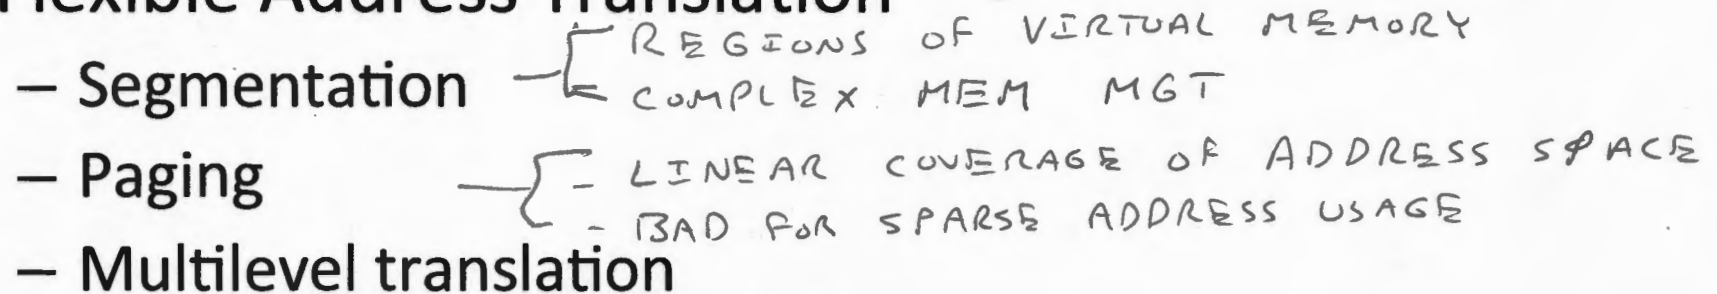 Flexible Address Translation
– Segmentation
REGIONS OF VIRTUAL MEMORY
COMPLEX MEM MGT
– Paging
- LINEAR COVERAGE OF ADDRESS SPACE
- BAD FOR SPARSE ADDRESS USAGE
– Multilevel translation